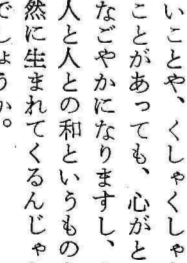 いことや、くしゃくしゃ
ことがあっても、心がと
なごやかになりますし、
人と人との和というもの
然に生まれてくるんじゃ
でしょうか。